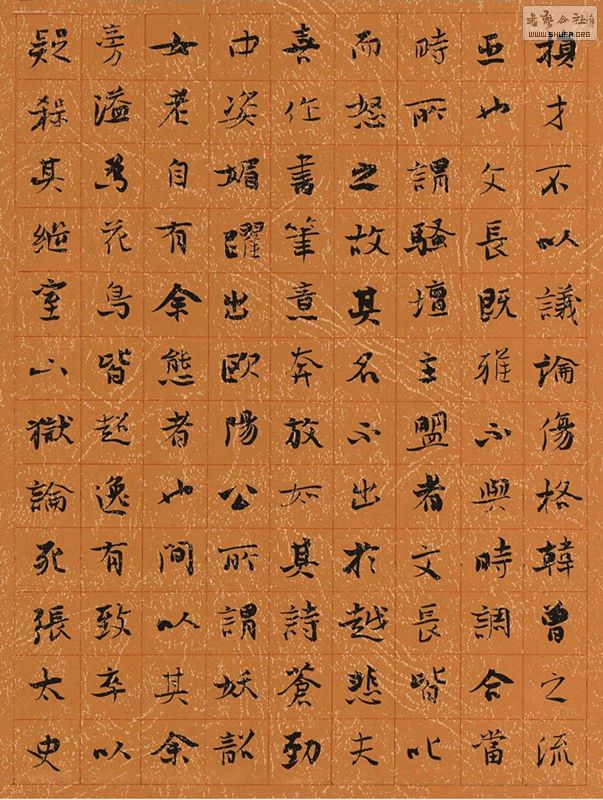 損才不以議論傷格韓曾之流
亞也文長既雅不與時調合當
時所謂騷壇主盟者文長皆叱
而怒之故其名不出於越悲夫
喜作書筆意奔放如其詩蒼勁
中姿媚躍出歐陽公所謂妖韶
女老自有余態者也間以其余
旁溢為花鳥皆超逸有致卒以
疑殺其繼室下獄論死張太史
WWW.SHUFA.ORG